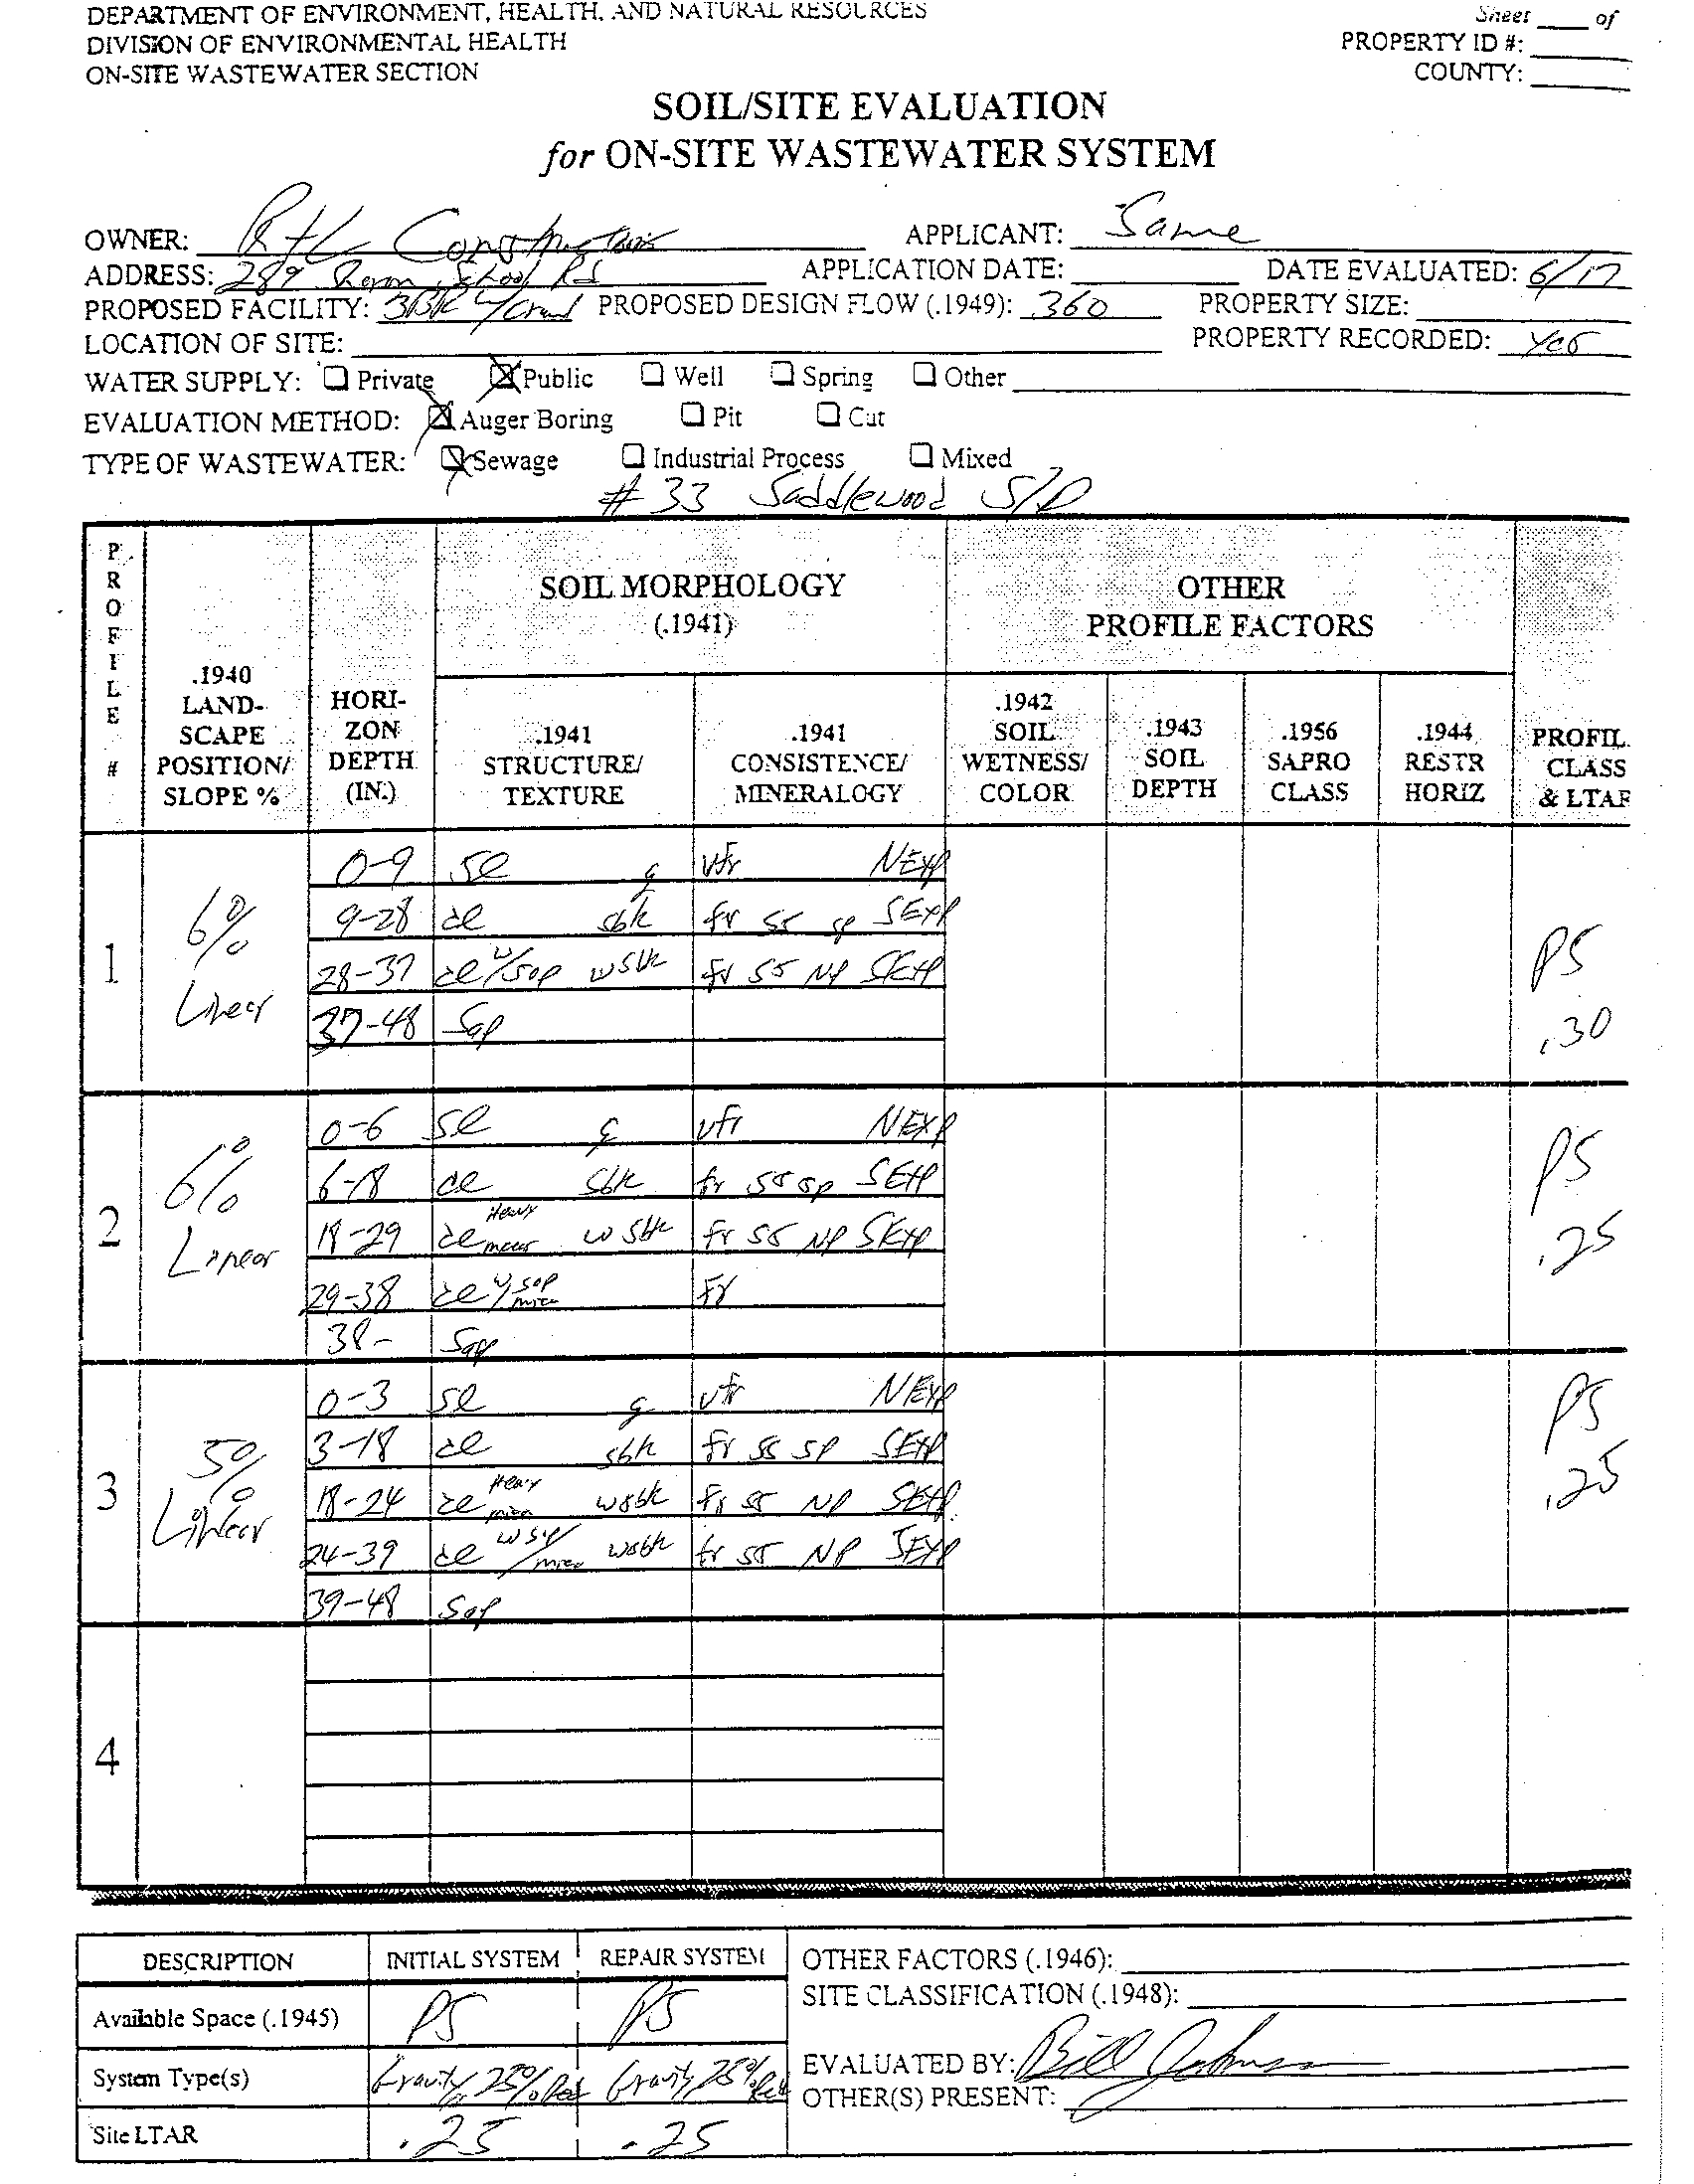 DEPARTMENT OF ENVIRONMENT, HEALTH, AND NATURAL RESOURCES
Sheet ____ of
DIVISION OF ENVIRONMENTAL HEALTH
PROPERTY ID #:
ON-SITE WASTEWATER SECTION
COUNTY:
SOIL/SITE EVALUATION
for ON-SITE WASTEWATER SYSTEM
OWNER: R+L Construction APPLICANT: Same
ADDRESS: 289 School Rd APPLICATION DATE: DATE EVALUATED: 6/17
PROPOSED FACILITY: 3BR w/crawl PROPOSED DESIGN FLOW (.1949): 360 PROPERTY SIZE:
LOCATION OF SITE: PROPERTY RECORDED: yes
WATER SUPPLY: ☐ Private ☒ Public ☐ Well ☐ Spring ☐ Other
EVALUATION METHOD: ☒ Auger Boring ☐ Pit ☐ Cut
TYPE OF WASTEWATER: ☒ Sewage ☐ Industrial Process ☐ Mixed
# 33 Saddlewood S/D
PROFILE #
.1940 LAND-SCAPE POSITION/ SLOPE %
HORI-ZON DEPTH (IN.)
SOIL MORPHOLOGY (.1941)
OTHER PROFILE FACTORS
.1941 STRUCTURE/ TEXTURE
.1941 CONSISTENCE/ MINERALOGY
.1942 SOIL WETNESS/ COLOR
.1943 SOIL DEPTH
.1956 SAPRO CLASS
.1944 RESTR HORIZ
PROFIL CLASS & LTAR
1 6% Linear PS .30
0-9 sl g vfr NEXP
9-28 cl sbk fr ss sp SEXP
28-37 cl w/sap wsbk fr ss NP SEXP
37-48 Sap
2 6% Linear PS .25
0-6 sl g vfr NEXP
6-18 cl sbk fr ss sp SEXP
18-29 cl Heavy mica w sbk fr ss NP SEXP
29-38 cl w/sap mica Fr
38- Sap
3 5% Linear PS .25
0-3 sl g vfr NEXP
3-18 cl sbk fr ss sp SEXP
18-24 cl Heavy mica wsbk fr ss NP SEXP
24-39 cl w sap/mica wsbk fr ss NP SEXP
39-48 Sap
4
DESCRIPTION INITIAL SYSTEM REPAIR SYSTEM
Available Space (.1945) PS PS
System Type(s) Gravity 25% Red Gravity 25% Red
Site LTAR .25 .25
OTHER FACTORS (.1946):
SITE CLASSIFICATION (.1948):
EVALUATED BY: Bill
OTHER(S) PRESENT: